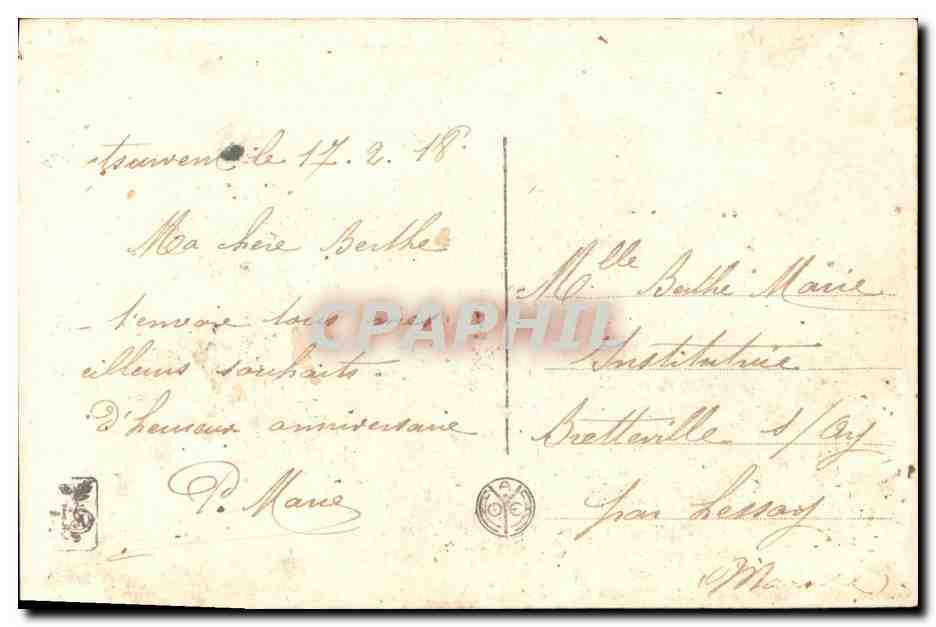 le 17.2.18.
Ma chère Berthe
t'envoie tous mes
eilleurs souhaits
d'heureux anniversaire
P. Marie
CPAPHIL
Mlle Berthe Marie
Institutrice
Bretteville s/Ay
par Lessay